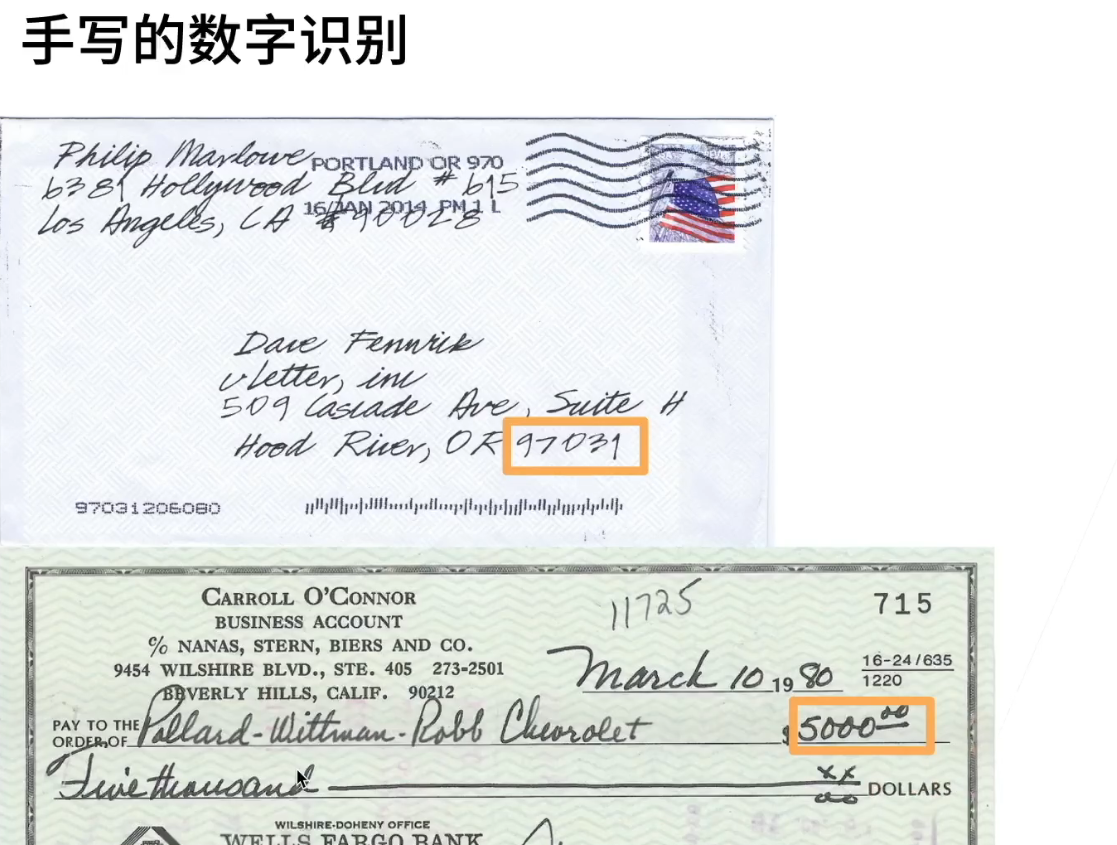 手写的数字识别
Philip Marlowe
PORTLAND OR 970
6381 Hollywood Blvd # 615
16 JAN 2014 PM 1 L
Los Angeles, CA # 90028
Dave Fennrik
vLetter, inc
509 Cascade Ave, Suite H
Hood River, OR 97031
97031206080
CARROLL O'CONNOR
BUSINESS ACCOUNT
% NANAS, STERN, BIERS AND CO.
9454 WILSHIRE BLVD., STE. 405 273-2501
BEVERLY HILLS, CALIF. 90212
11725
715
March 10 19 80
16-24/635
1220
PAY TO THE
ORDER OF Pollard-Wittman-Robb Chevrolet $ 5000 00
Five thousand xx
00 DOLLARS
WILSHIRE-DOHENY OFFICE
WELLS FARGO BANK